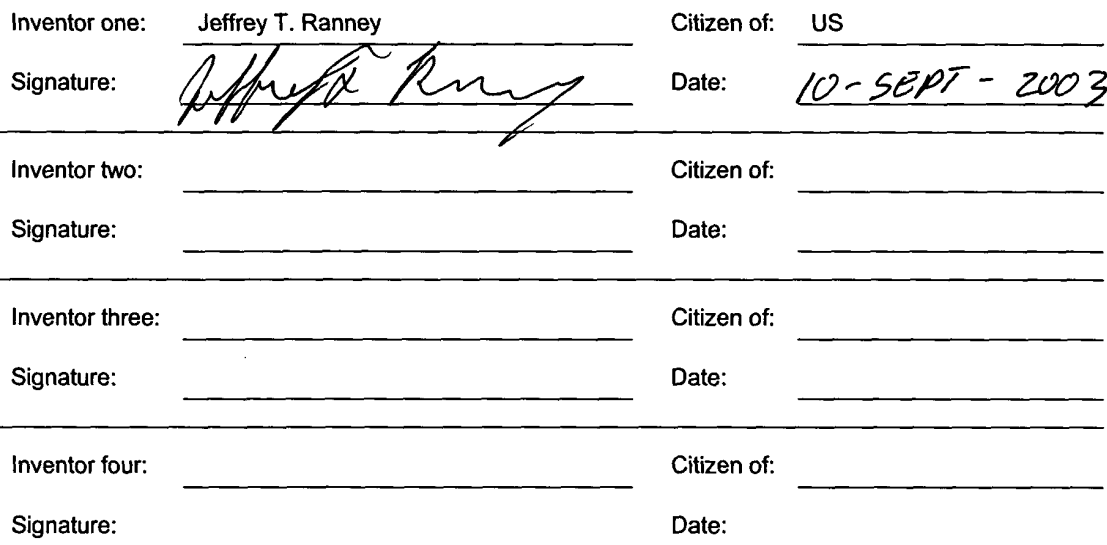 Inventor one: Jeffrey T. Ranney Citizen of: US
Signature: Jeffrey T. Ranney Date: 10-SEPT-2003
Inventor two: Citizen of:
Signature: Date:
Inventor three: Citizen of:
Signature: Date:
Inventor four: Citizen of:
Signature: Date: